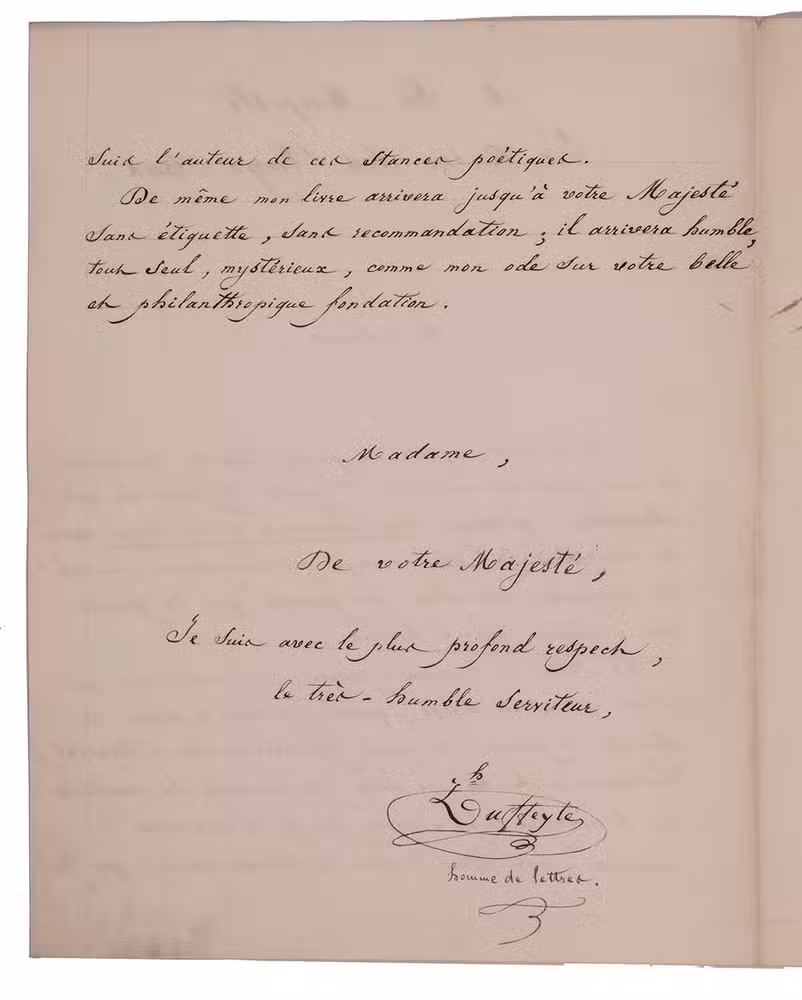 suis l'auteur de ces stances poétiques.
De même mon livre arrivera jusqu'à votre Majesté
sans étiquette, sans recommandation ; il arrivera humble,
tout seul, mystérieux, comme mon ode sur votre belle
et philanthropique fondation.
Madame,
De votre Majesté,
Je suis avec le plus profond respect,
le très-humble serviteur,
homme de lettres.